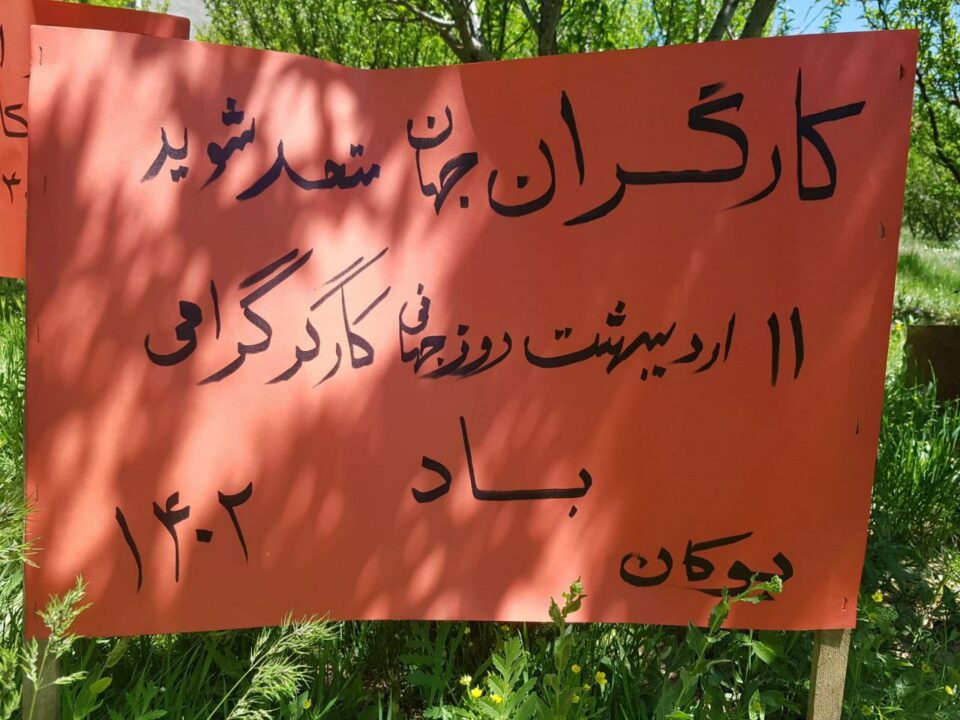 کارگران جهان متحد شوید
۱۱ اردیبهشت روز جهانی کارگر گرامی
باد
بوکان
۱۴۰۲